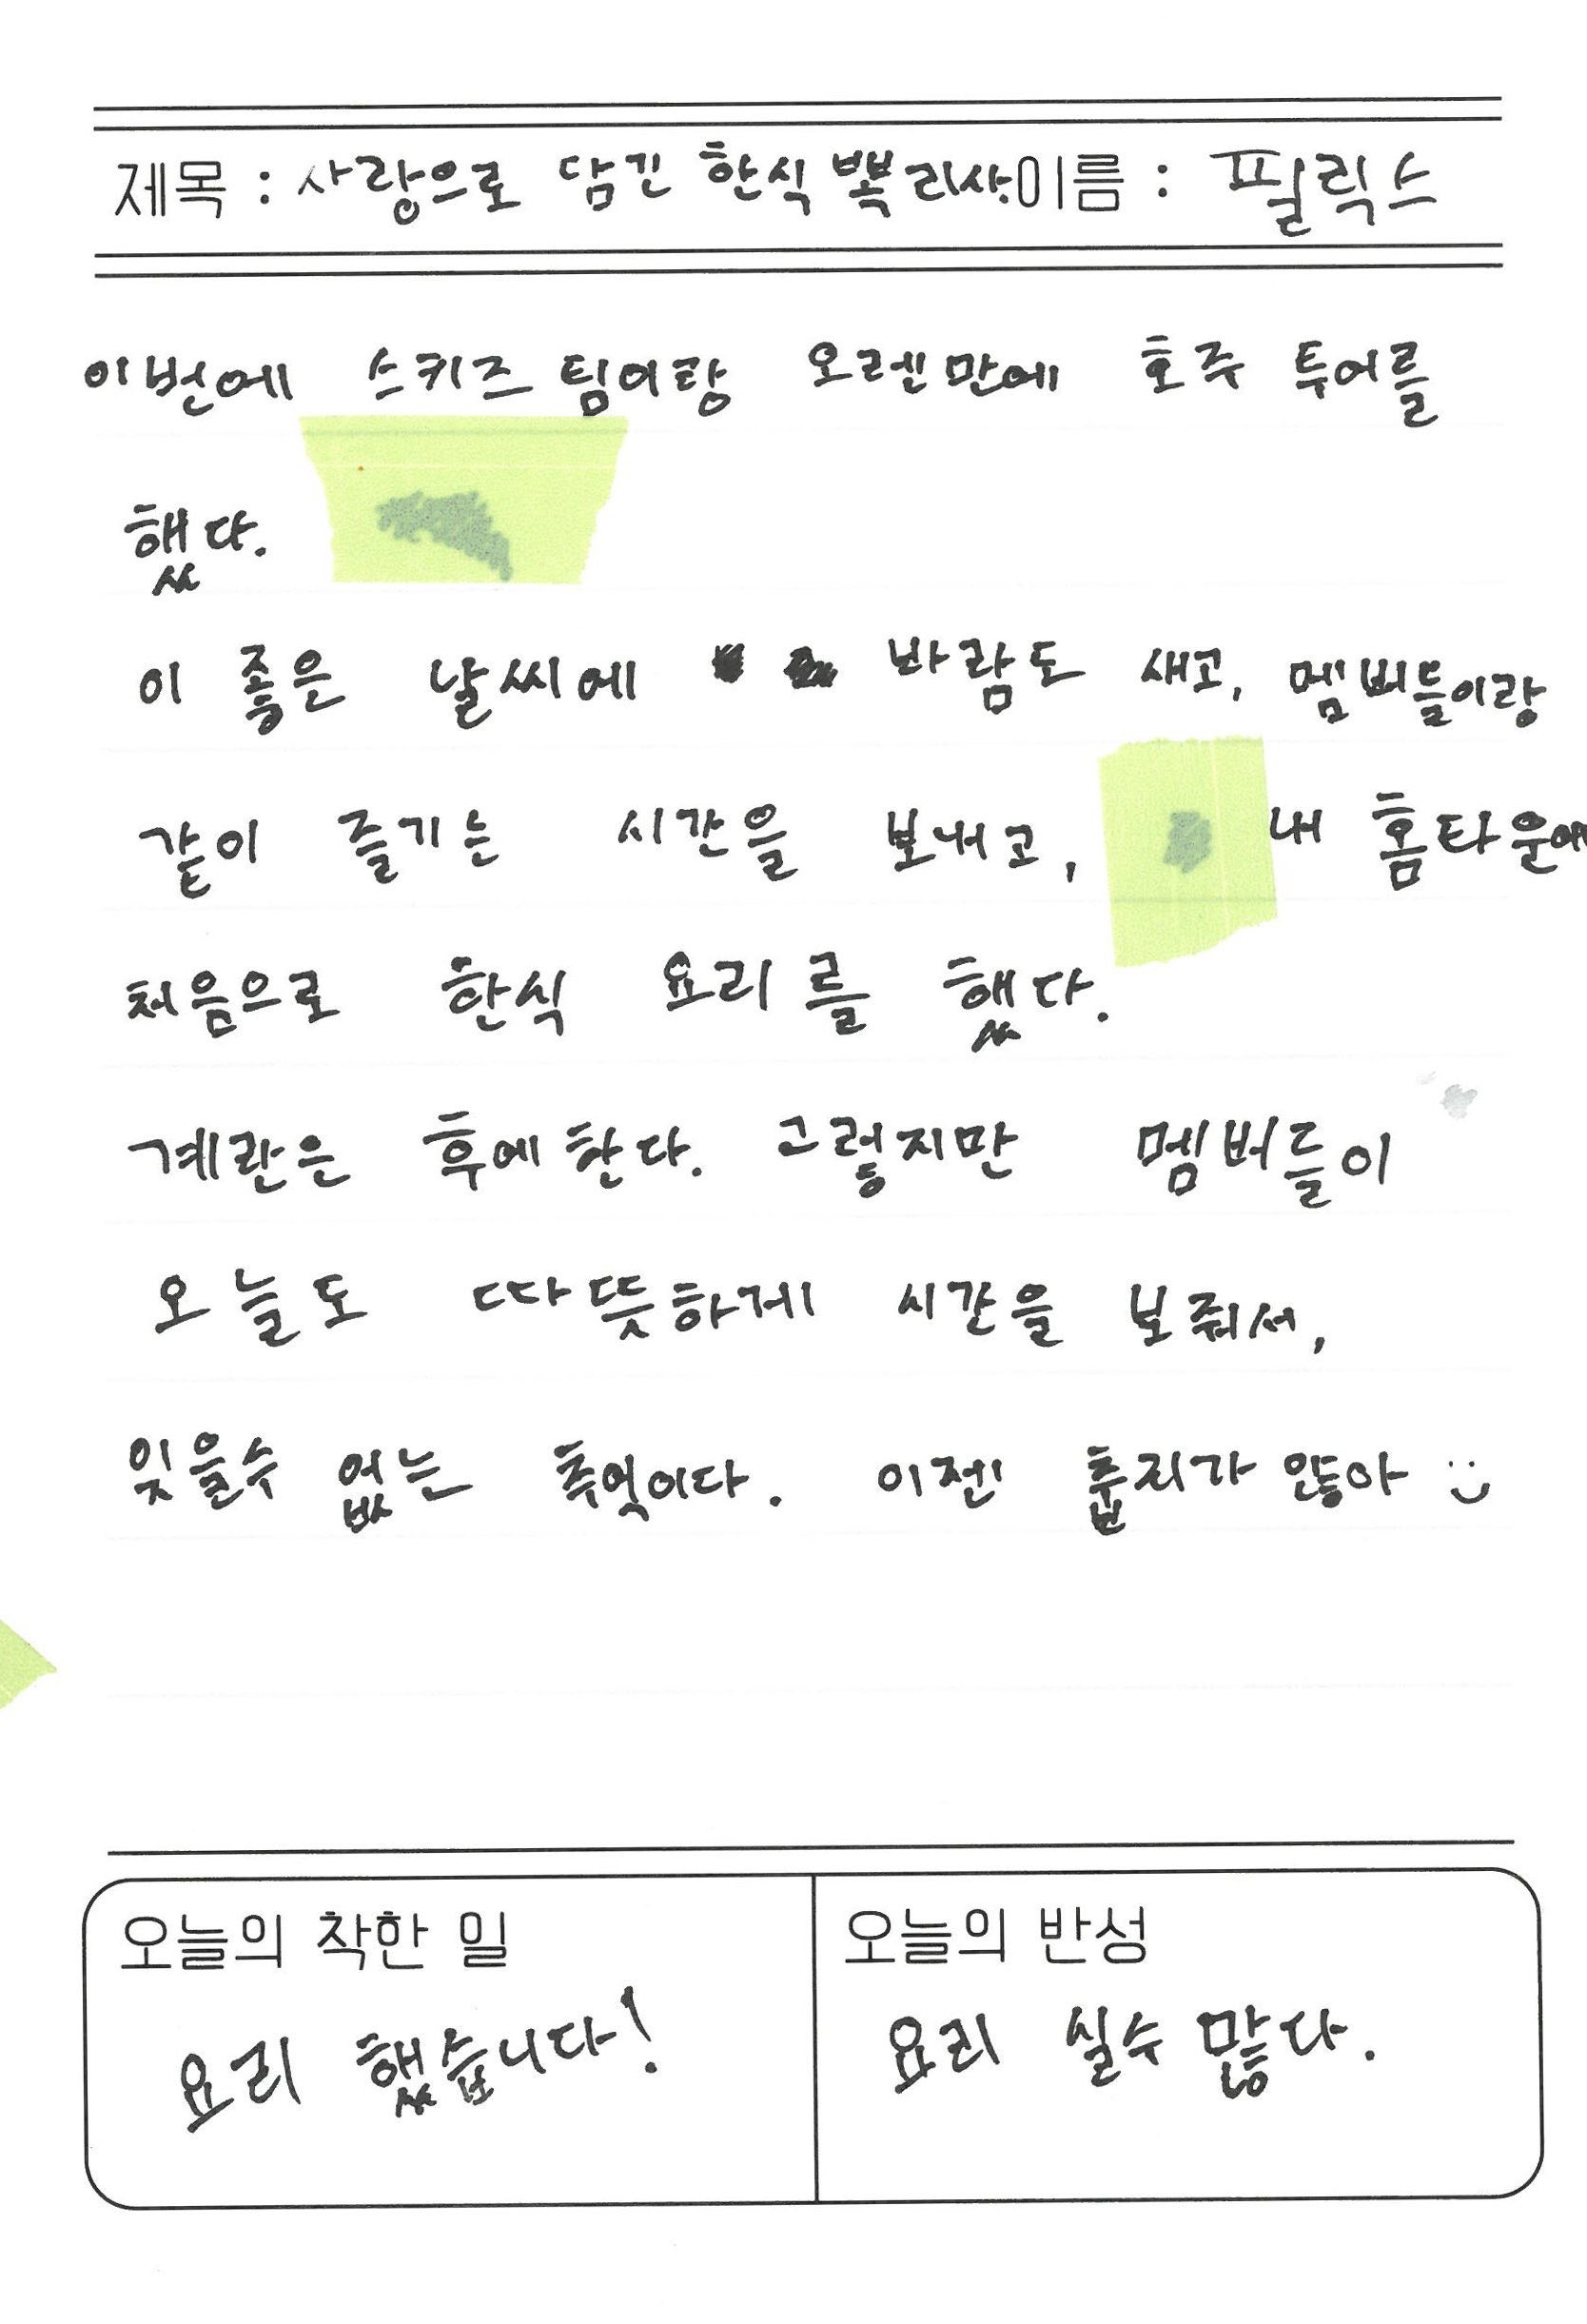 제목 : 사랑으로 담긴 한식 뽁리사. 이름 : 필릭스
이번에 스키즈 팀이랑 오렌만에 호주 투어를
했다.
이 좋은 날씨에 바람도 새고, 멤버들이랑
같이 즐기는 시간을 보내고, 내 홈타운에
처음으로 한식 요리를 했다.
계란은 후에한다. 그렇지만 멤버들이
오늘도 따뜻하게 시간을 보줘서,
잊을수 없는 추억이다. 이젠 춥지가 않아
오늘의 착한 일
요리 했습니다!
오늘의 반성
요리 실수 많다.